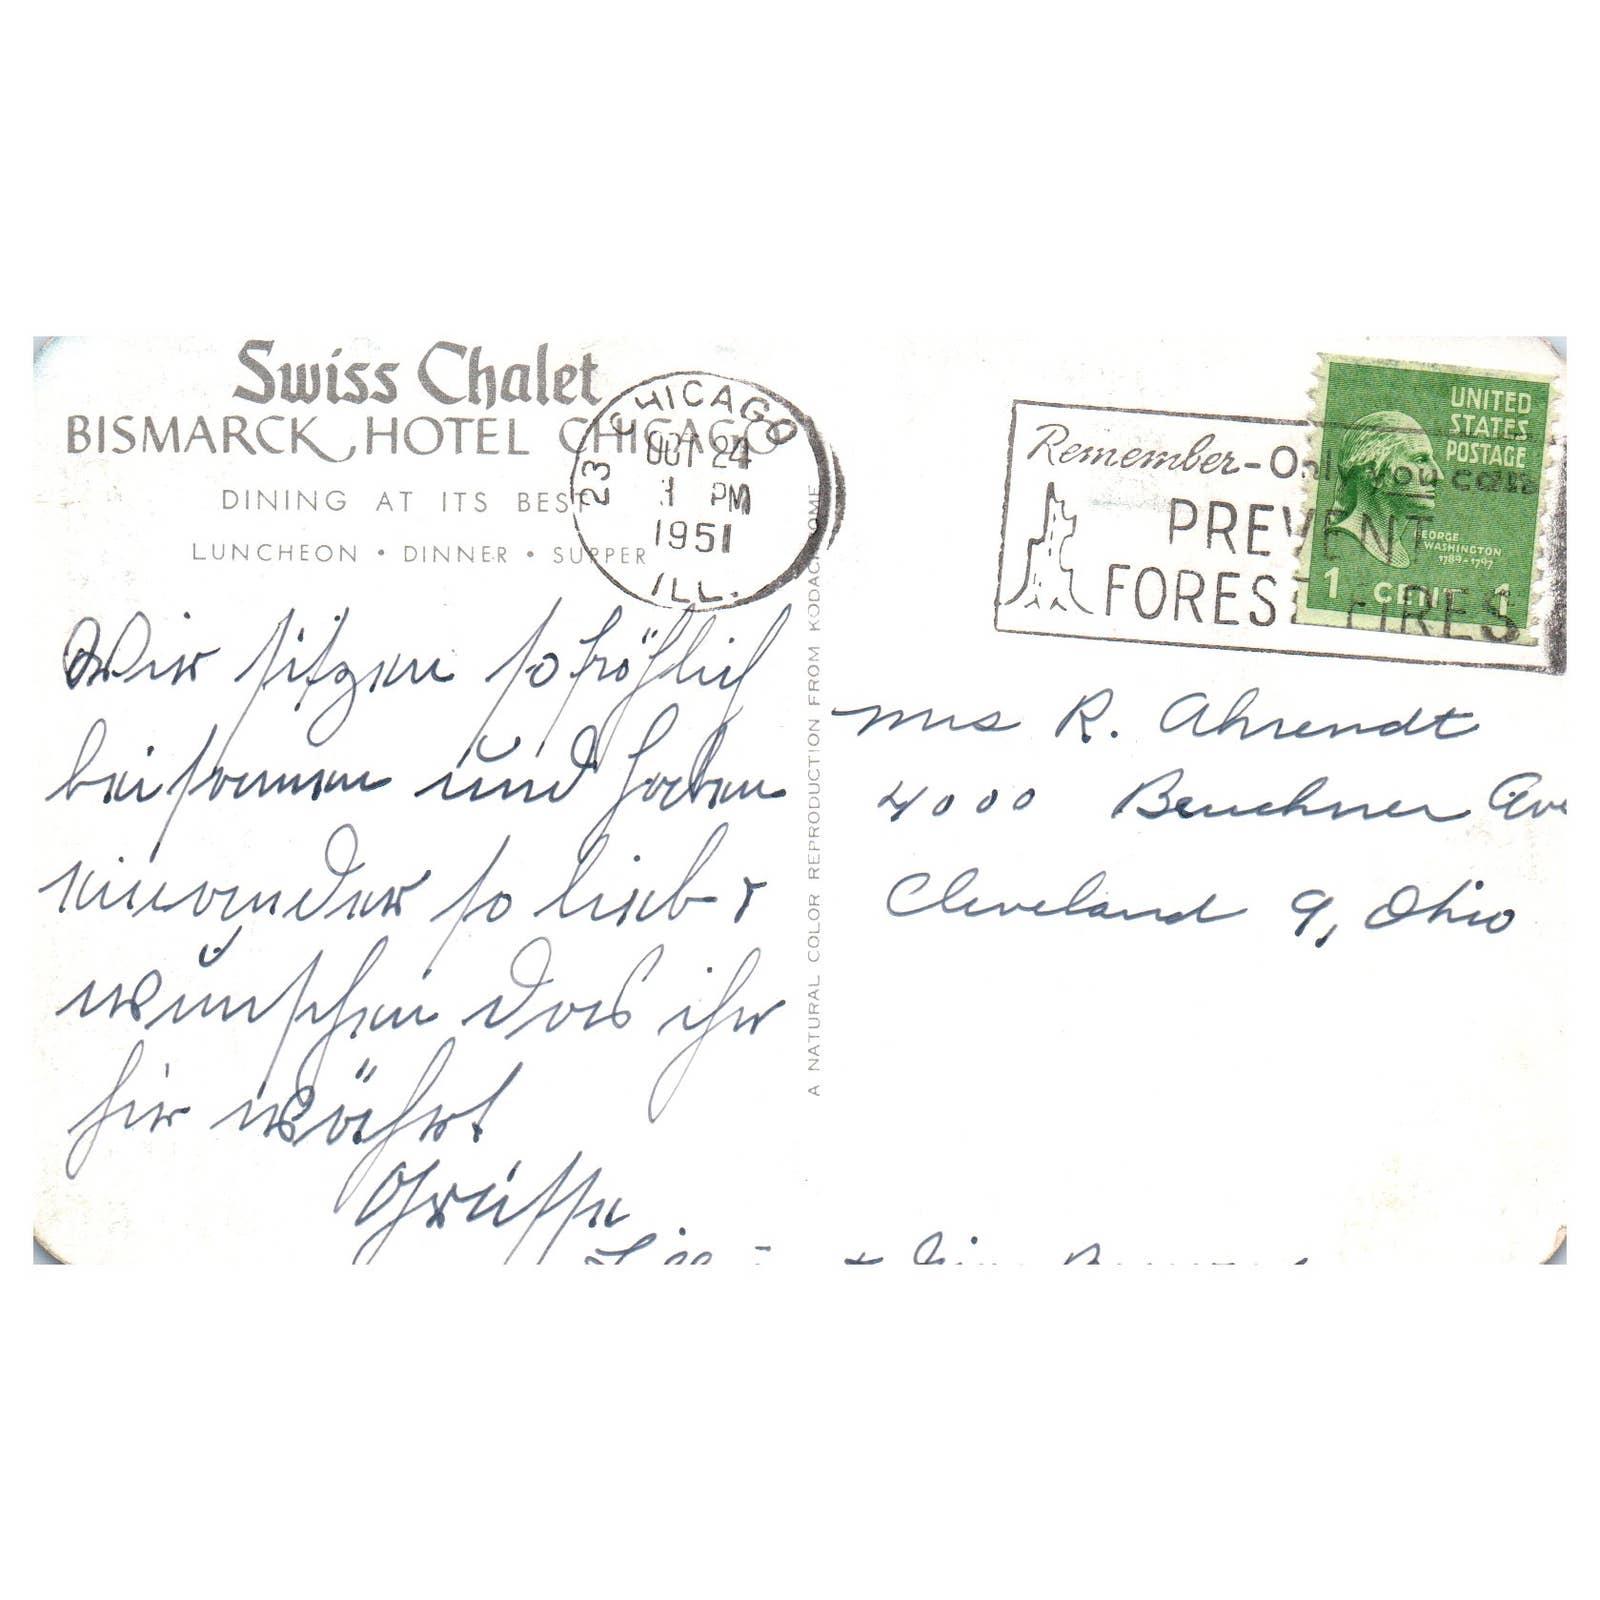 Swiss Chalet
BISMARCK HOTEL CHICAGO
DINING AT ITS BEST
LUNCHEON • DINNER • SUPPER
CHICAGO
23
OCT 24
1 PM
1951
ILL.
Remember-Only you can
PREVENT
FOREST FIRES
UNITED
STATES
POSTAGE
GEORGE
WASHINGTON
1789-1797
1 CENT 1
Wir sitzen so fröhlich
beisammen und haben
einander so lieb &
wünschen das ihr
hir währt
Grüsse
A NATURAL COLOR REPRODUCTION FROM KODACHROME
Mrs R. Ahrendt
4000 Beuchner Ave
Cleveland 9, Ohio